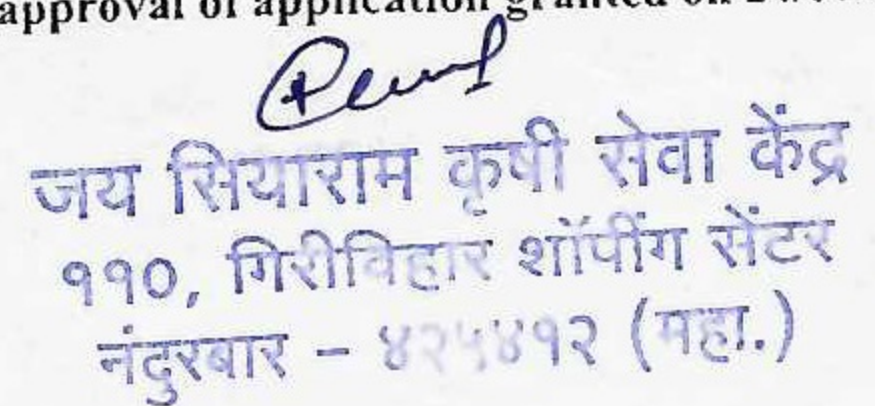 approval of application granted on
जय सियाराम कृषी सेवा केंद्र
११०, गिरीविहार शॉपींग सेंटर
नंदुरबार - ४२५४१२ (महा.)